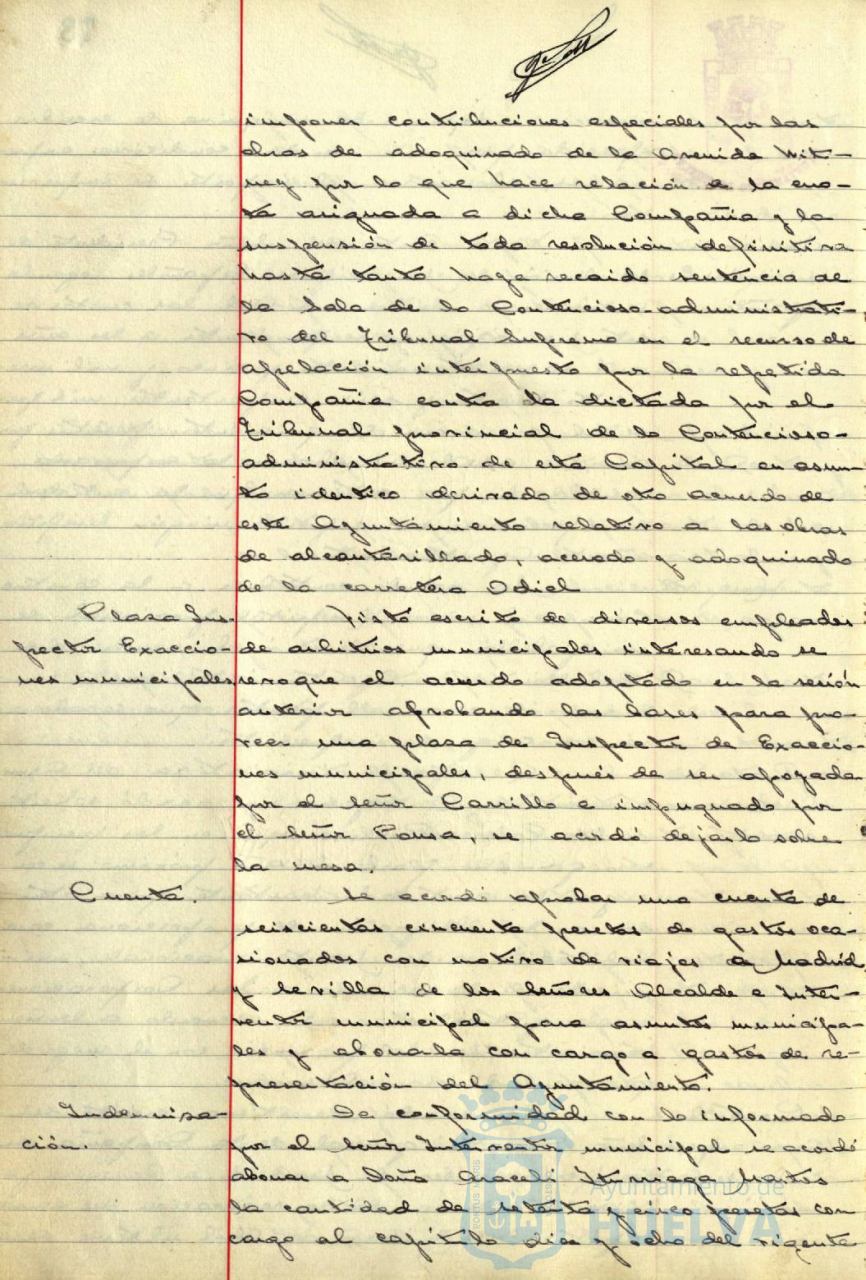 imponer contribuciones especiales por las
obras de adoquinado de la Avenida Wit-
ney por lo que hace relación a la cuo-
ta asignada a dicha Compañia y la
suspensión de toda resolución definitiva
hasta tanto haya recaido sentencia de
la Sala de lo Contencioso-administrati-
vo del Tribunal Supremo en el recurso de
apelación interpuesto por la repetida
Compañia contra la dictada por el
Tribunal provincial de lo Contencioso-
administrativo de esta Capital en asun-
to identico derivado de otro acuerdo de
este Ayuntamiento relativo a las obras
de alcantarillado, acerado y adoquinado
de la carretera Odiel
Plaza Ins-
pector Exaccio-
nes municipales
Visto escrito de diversos empleados
de arbitrios municipales interesando se
revoque el acuerdo adoptado en la sesión
anterior aprobando las bases para pro-
veer una plaza de Inspector de Exaccio-
nes municipales, después de ser apoyada
por el señor Carrillo e impugnado por
el señor Pousa, se acordó dejarlo sobre
la mesa.
Cuenta.
Se acordó aprobar una cuenta de
seiscientas cincuenta pesetas de gastos oca-
sionados con motivo de viajes a Madrid
y Sevilla de los Señores Alcalde e Inter-
ventor municipal para asuntos municipa-
les y abonarla con cargo a gastos de re-
presentación del Ayuntamiento.
Indemniza-
ción.
De conformidad con lo informado
por el Señor Interventor municipal se acordó
abonar a Doña Araceli Iturriaga Martos
la cantidad de setenta y cinco pesetas con
cargo al capitulo diez y ocho del vigente
Ayuntamiento de
HUELVA